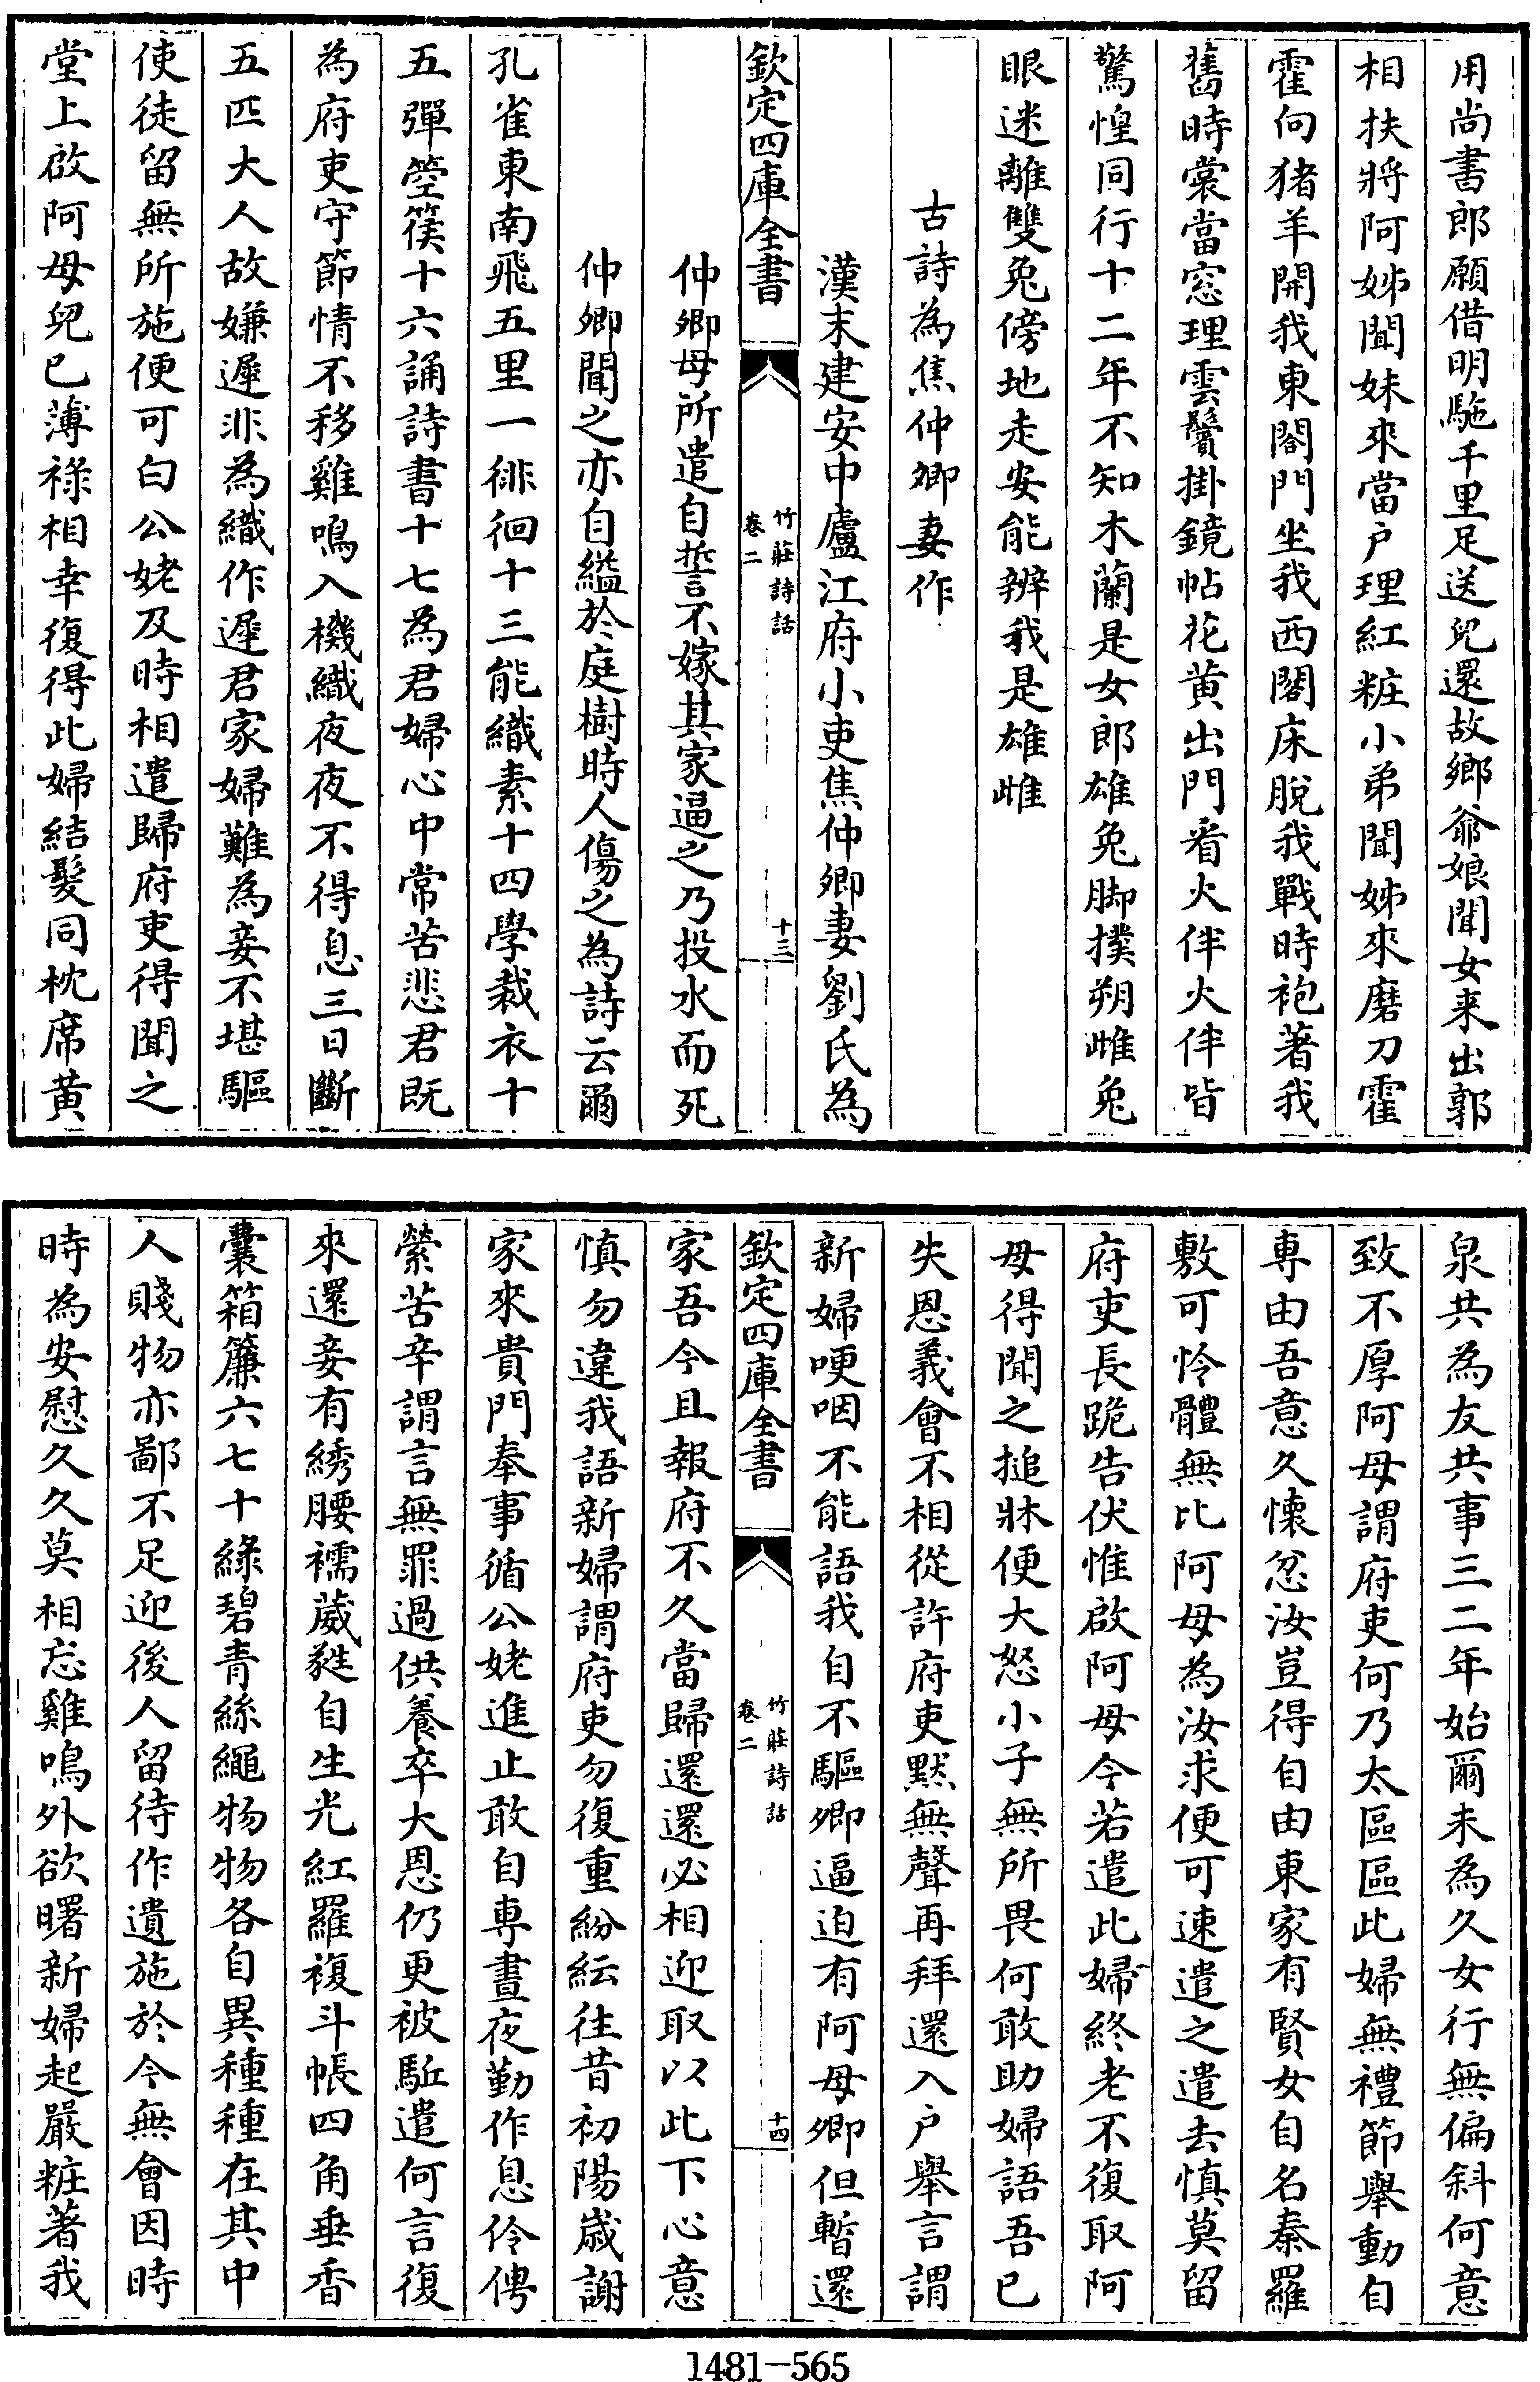 用尚書郎願借明駞千里足送兒還故鄉爺娘聞女来出郭
相扶將阿姊聞妹來當户理紅粧小弟聞姊來磨刀霍
霍向猪羊開我東閣門坐我西閣床脫我戰時袍著我
舊時裳當窓理雲鬢掛鏡帖花黄出門看火伴火伴皆
驚惶同行十二年不知木蘭是女郎雄兔脚撲朔雌兔
眼迷離雙兔傍地走安能辨我是雄雌
古詩為焦仲卿妻作
漢末建安中廬江府小吏焦仲卿妻劉氏為
欽定四庫全書
竹莊詩話
卷二
十三
仲卿母所遣自誓不嫁其家逼之乃投水而死
仲卿聞之亦自縊於庭樹時人傷之為詩云爾
孔雀東南飛五里一徘徊十三能織素十四學裁衣十
五彈箜篌十六誦詩書十七為君婦心中常苦悲君既
為府吏守節情不移雞鳴入機織夜夜不得息三日斷
五匹大人故嫌遲非為織作遲君家婦難為妾不堪驅
使徒留無所施便可白公姥及時相遣歸府吏得聞之
堂上啟阿母兒已薄祿相幸復得此婦結髮同枕席黄
泉共為友共事三二年始爾未為久女行無偏斜何意
致不厚阿母謂府吏何乃太區區此婦無禮節舉動自
專由吾意久懷忿汝豈得自由東家有賢女自名秦羅
敷可怜體無比阿母為汝求便可速遣之遣去慎莫留
府吏長跪告伏惟啟阿母今若遣此婦終老不復取阿
母得聞之搥牀便大怒小子無所畏何敢助婦語吾已
失恩義會不相從許府吏默無聲再拜還入户舉言謂
新婦哽咽不能語我自不驅卿逼迫有阿母卿但暫還
欽定四庫全書
竹莊詩話
卷二
十四
家吾今且報府不久當歸還還必相迎取以此下心意
慎勿違我語新婦謂府吏勿復重紛紜往昔初陽歲謝
家來貴門奉事循公姥進止敢自專晝夜勤作息伶俜
縈苦辛謂言無罪過供養卒大恩仍更被駈遣何言復
來還妾有綉腰襦葳蕤自生光紅羅複斗帳四角垂香
囊箱簾六七十綠碧青絲繩物物各自異種種在其中
人賤物亦鄙不足迎後人留待作遺施於今無會因時
時為安慰久久莫相忘雞鳴外欲曙新婦起嚴粧著我
1481-565